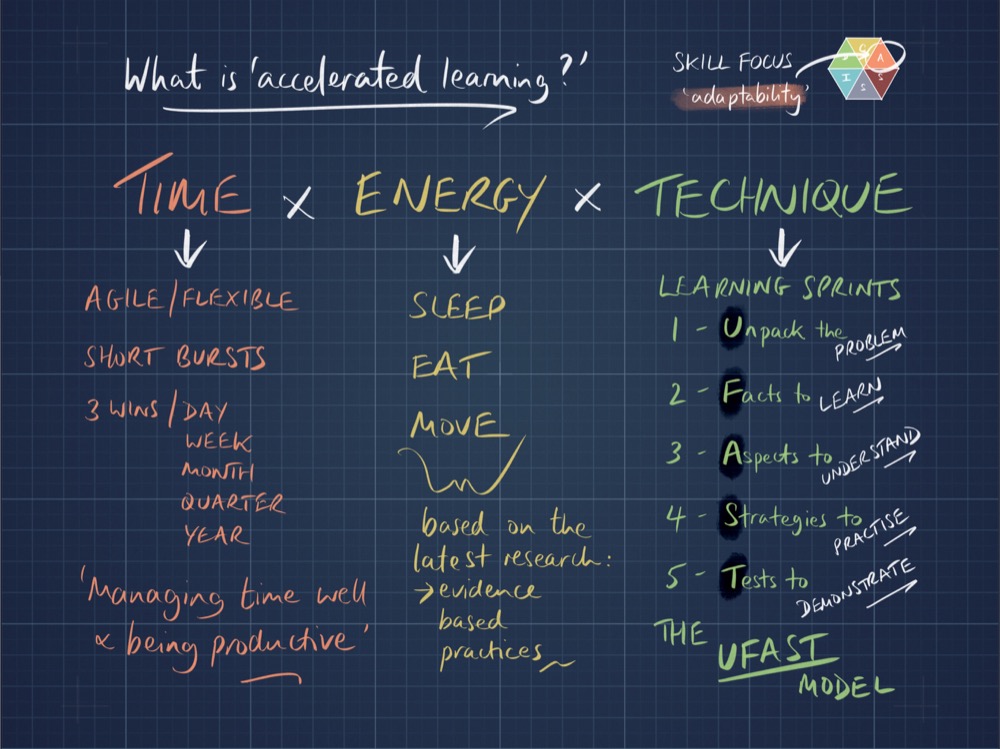 What is 'accelerated learning?'
SKILL FOCUS
'adaptability'
C
A
S
S
I
TIME x ENERGY x TECHNIQUE
AGILE/FLEXIBLE
SHORT BURSTS
3 WINS/DAY
WEEK
MONTH
QUARTER
YEAR
'Managing time well
& being productive'
SLEEP
EAT
MOVE
based on the
latest research:
→evidence
based
practices
LEARNING SPRINTS
1 - Unpack the PROBLEM
2 - Facts to LEARN
3 - Aspects to UNDERSTAND
4 - Strategies to PRACTISE
5 - Tests to DEMONSTRATE
THE
UFAST
MODEL